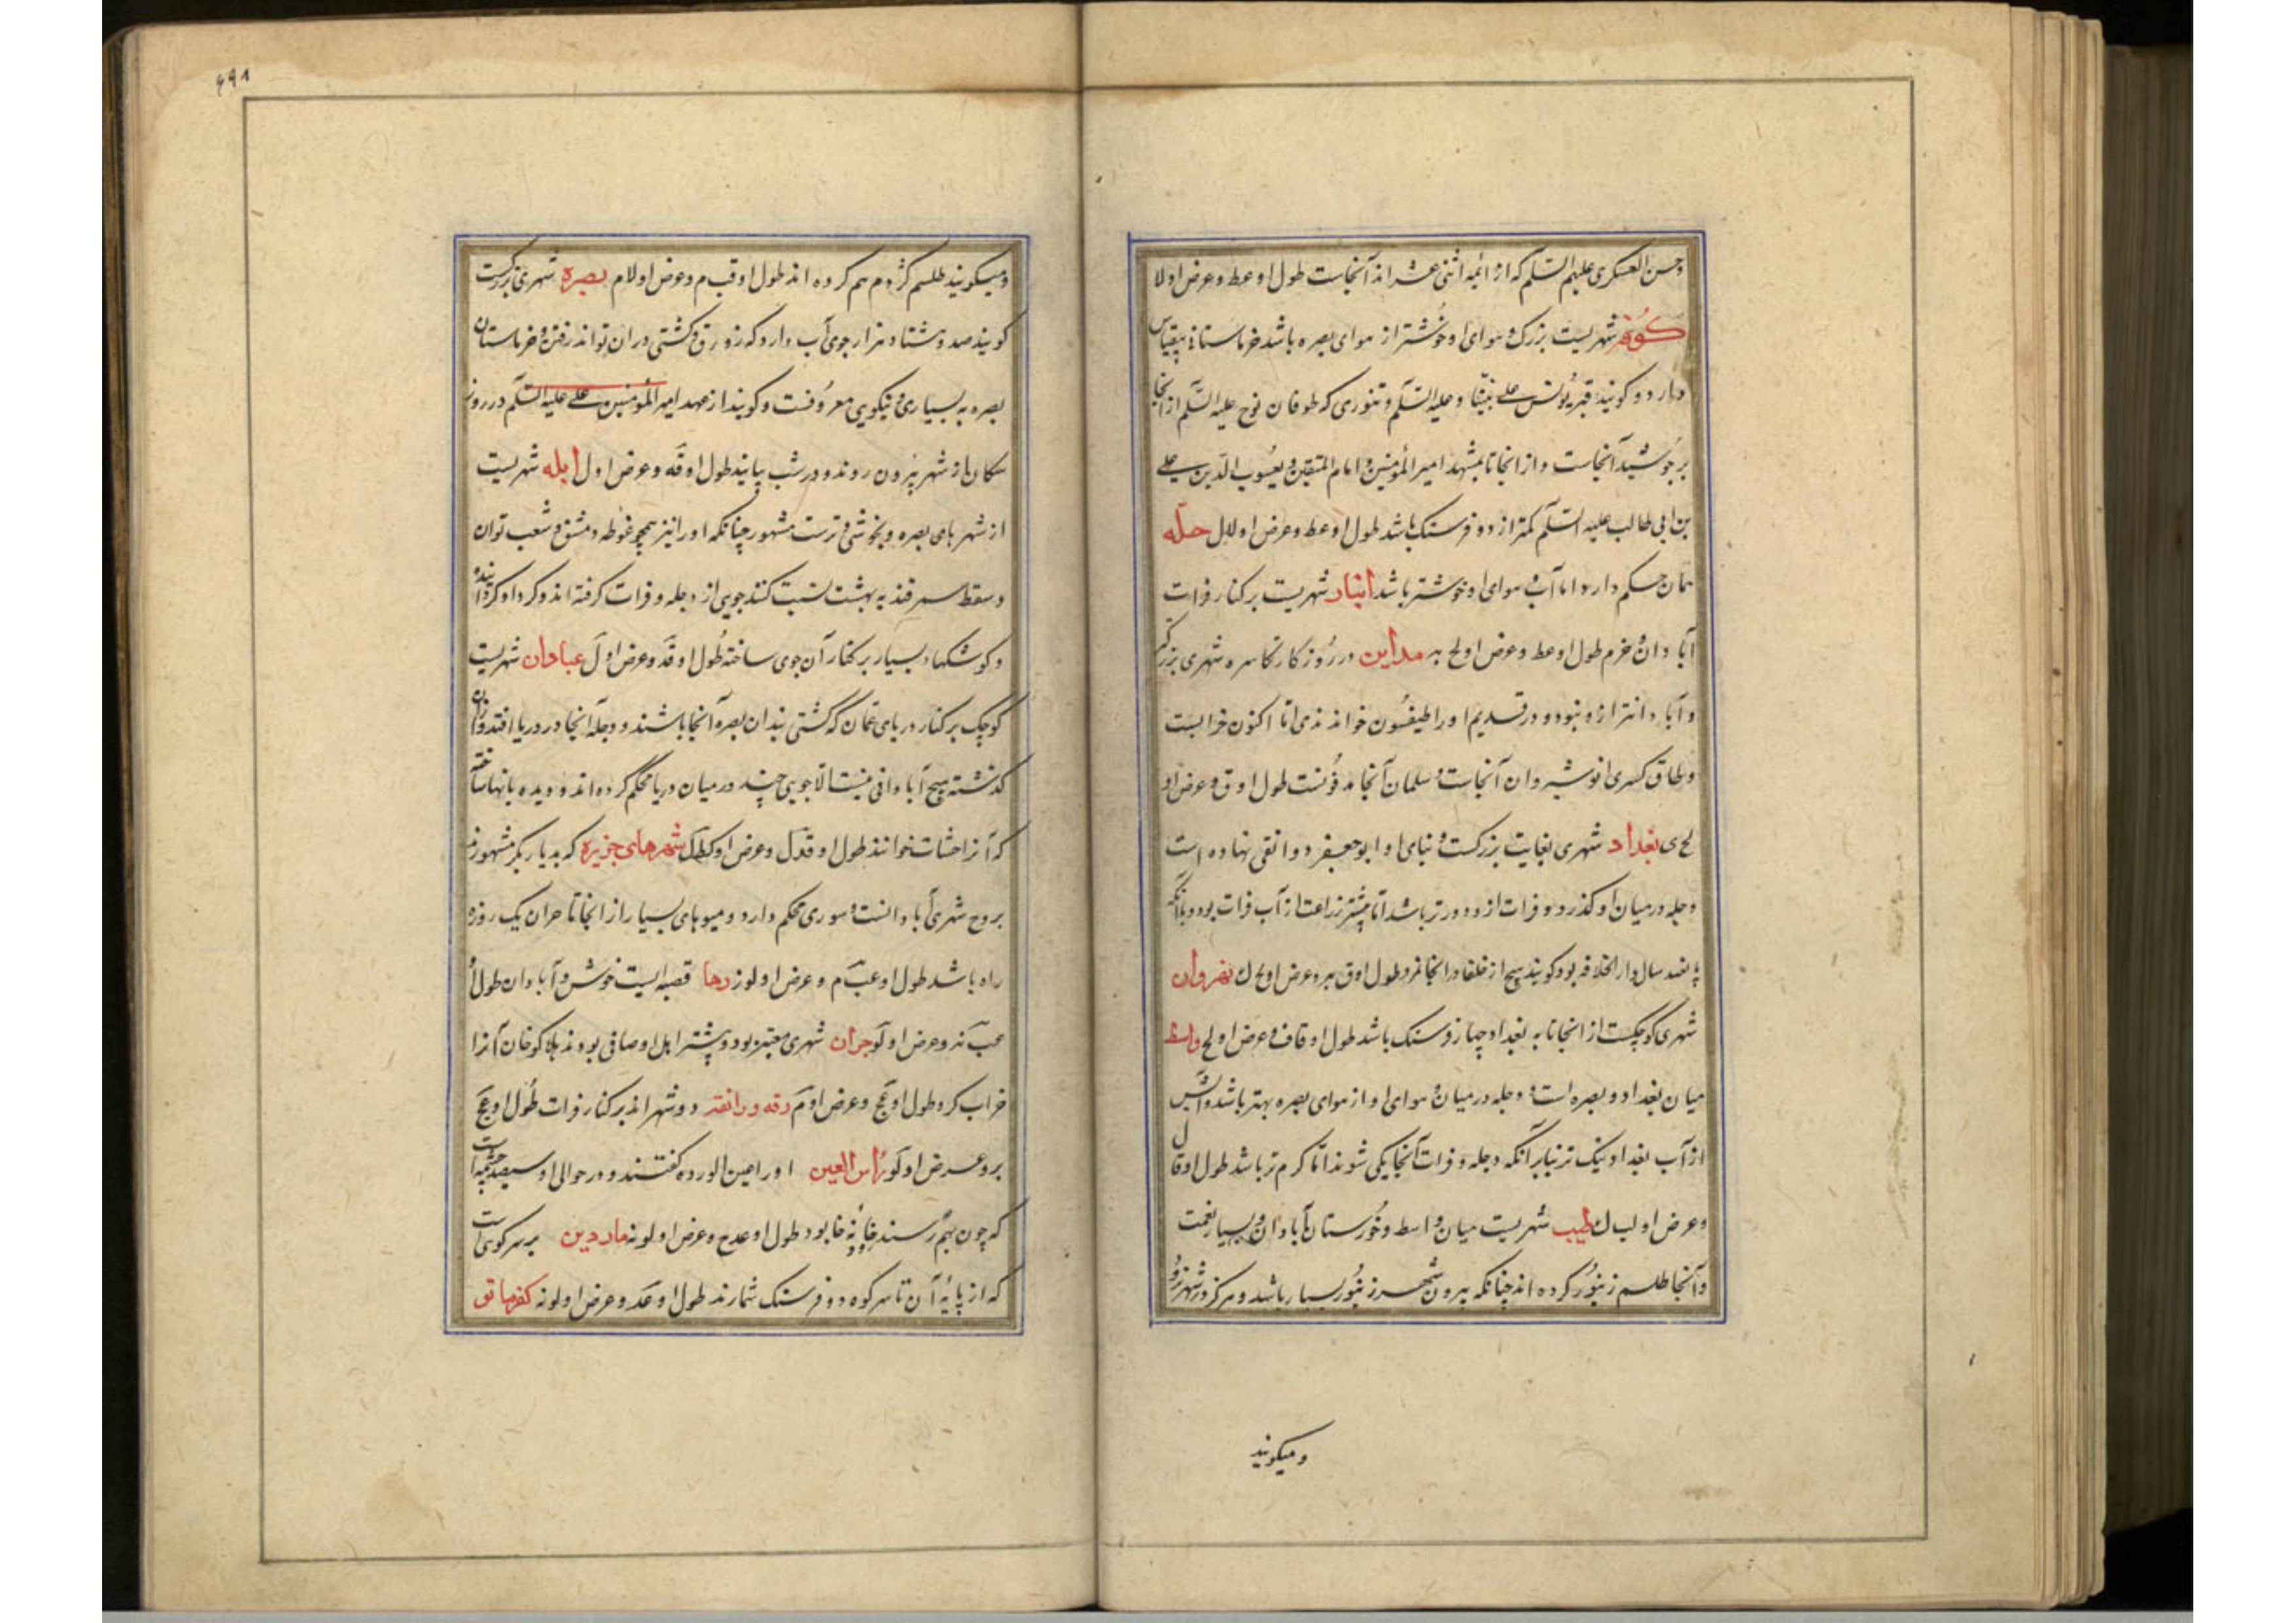 وحسن العسکری علیهم السلم که از ائمه اثنی عشر اند آنجاست طول او عط و عرض او لا
کوفه شهریست بزرک و هوای او خوشتر از هوای بصره باشد خرماستانها بیقیاس
دارد و کویند قبر یونس علی نبینا و علیه السلم و تنوری که طوفان نوح علیه السلم از انجا
برجوشید آنجاست و از انجا تا بمشهد امیر المؤمنین و امام المتقین و یعسوب الدین علی
بن ابی طالب علیه السلم کمتر از دو فرسنک باشد طول او عط و عرض او لال حله
همان حکم دارد اما آب و هوای او خوشتر باشد انبار شهریست بر کنار فرات
آبادان و خرم طول او عط و عرض او لح به مداین در روزکار اکاسره شهری بزرکتر
و آبادانتر ازو نبود و در قدیم او را طیفسون خواندندی اما اکنون خرابست
و طاق کسری انوشیروان آنجاست و سلمان آنجا مدفونست طول او ق و عرض او
لح ی بغداد شهری بغایت بزرکست و بنای او ابو جعفر دوانقی نهاده است
دجله در میان او کذرد و فرات ازو دورتر باشد اما بیشتر زراعت از آب فرات بود و بلاآنکه
پانصد سال دار الخلافه بود کویند هیچ از خلفا در انجا نمرد طول او ق ببر و عرض او لح ک نهروان
شهری کوچکست از انجا تا به بغداد چهار فرسنک باشد طول او قاف و عرض او لح واسط
میان بغداد و بصره است و دجله در میان و هوای او از هوای بصره بهتر باشد و آبش
از آب بغداد نیک تر بنابر آنکه دجله و فرات آنجا یکی شوند اما کرم تر باشد طول او قال
و عرض او لب ک طیب شهریست میان واسط و خوزستان آبادان و بسیار نعمت
و آنجا طلسم زنبور کرده اند چنانکه بیرون شهر زنبور بسیار باشد و هرکز در شهر نرود
و میکویند
۶۹۱
و میکویند طلسم کژدم هم کرده اند طول او قب م و عرض او لام بصره شهری بزرکست
کویند صد و هشتاد هزار جوی آب دارد که زورق و کشتی در ان تواند رفت و خرماستان
بصره به بسیاری و نیکویی معروفست و کویند از عهد امیر المؤمنین علی علیه السلم در روز
سکان از شهر بیرون روند و در شب بیایند طول او قه و عرض او ل ابله شهریست
از شهرهای بصره و بخوشی و ترست مشهور چنانکه او را نیز همچو غوطه دمشق و شعب توان
و سقط سمرقند به بهشت نسبت کنند جویی از دجله و فرات کرفته اند و کرد او کردانیده
و کوشکهاء بسیار بر کنار آن جوی ساخته طول او قد و عرض او ل عبادان شهریست
کوچک بر کنار دریای عمان که کشتی بندان بصره آنجا باشند و دجله آنجا در دریا افتد و ازان
کذشته هیچ آبادانی نیست الا جویی چند در میان دریا محکم کرده اند و دیده بانها ساخته
که آنرا خشات خوانند طول او قدل و عرض او کطک شهرهای جزیره که بدیار بکر مشهورند
بروج شهری آبادانست و سوری محکم دارد و میوهای بسیار از انجا تا حران یک روزه
راه باشد طول او عب م و عرض او لوز رها قصبه ایست خوش و آبادان طول او
عب نه و عرض او لو حران شهری معتبر بود و بیشتر اهل او صافی بودند هلاکو خان آنرا
خراب کرد طول او عج و عرض او م رقه و رافقه دو شهر اند بر کنار فرات طول او عج
بر و عرض او لو راس العین او را عین الورده کفتند و در حوالی او سیصد چشمه است
که چون بهم رسند خابور بود طول او عدح و عرض او لونه ماردین بر سر کوهی است
که از پایه آن تا سر کوه دو فرسنک شمارند طول او عد و عرض او لونه کفرماتق